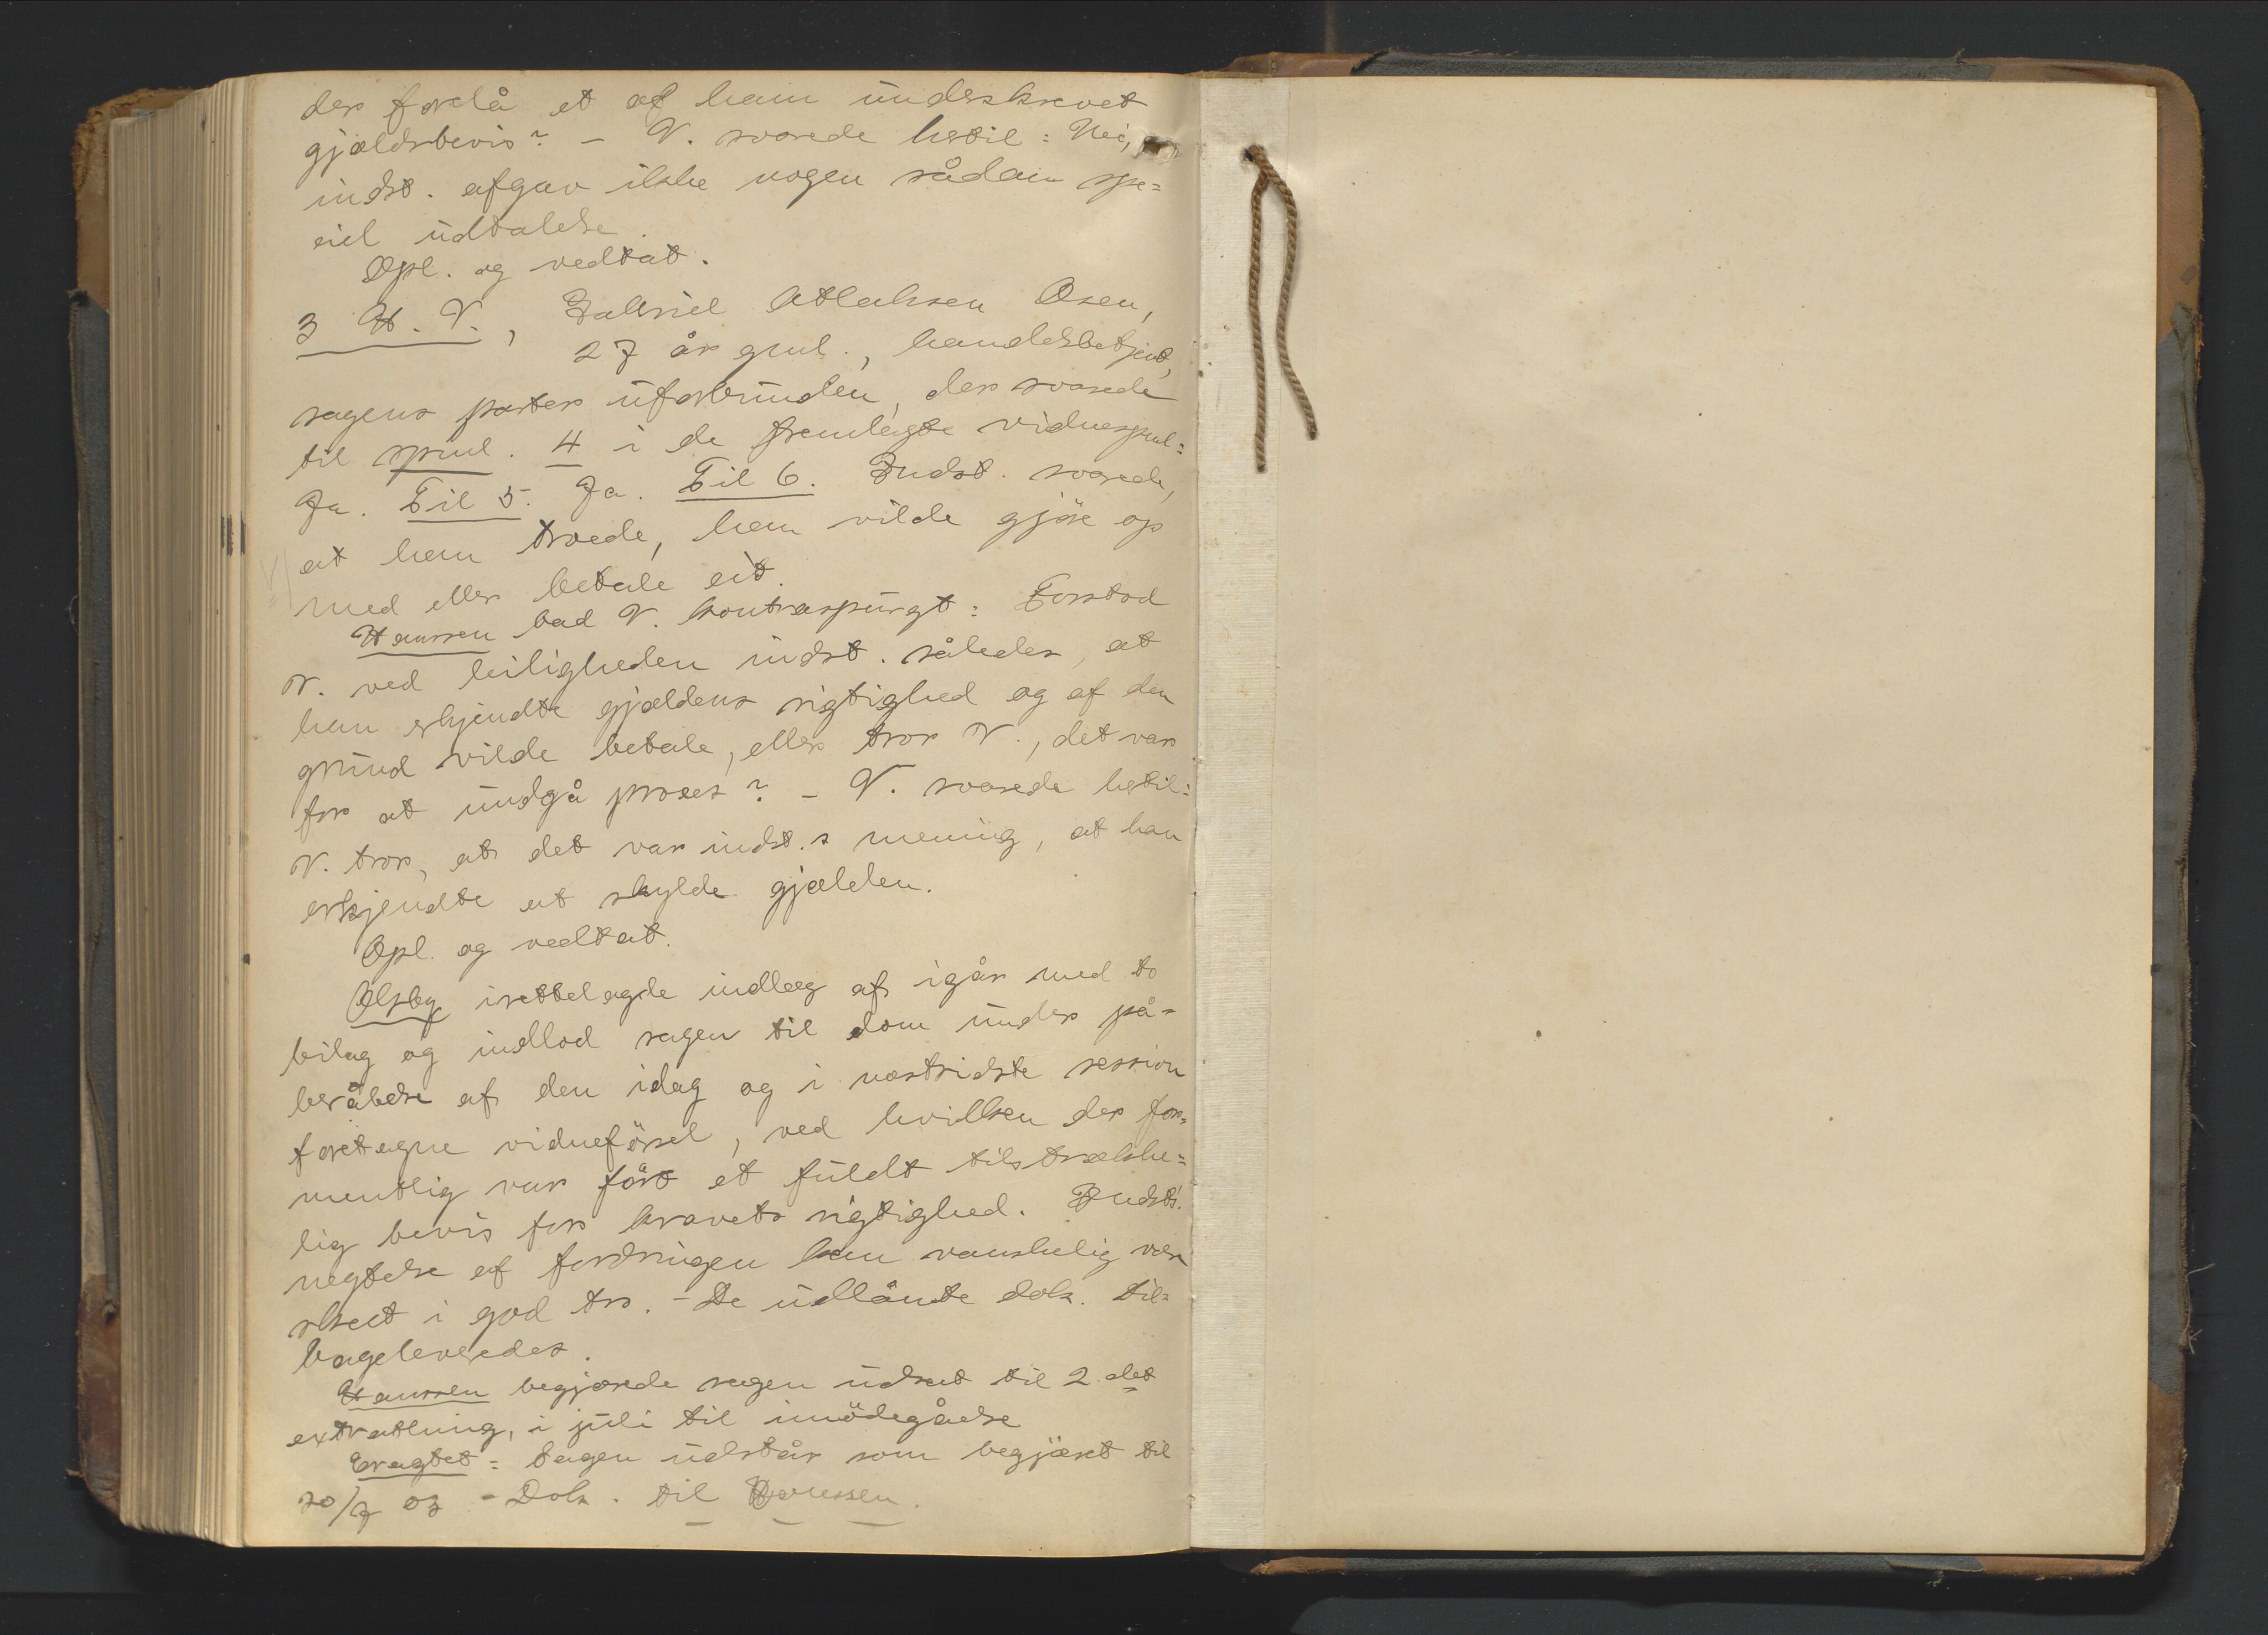 der forelå et af ham underskrevet
gjældsbevis? - V. svarede hertil: Nei,
indst. afgav ikke nogen sådan spe=
ciel udtalelse.
Opl. og vedtat.
3 H. V., Gabriel Atlaksen Osen,
27 år gml., handelsbetjent,
sagens parter uforbunden, der svarede
til spml. 4 i de fremlagte vidnespml:
Ja. Til 5. Ja. Til 6. Indst. svarede,
at han trvede, han vilde gjöre op
med eller betale eit.
Hanssen bad V. kontraspurgt: Forstod
V. ved leiligheden indst. således, at
han erkjendte gjældens rigtighed og af den
grund vilde betale, eller tror V., det var
for at undgå proces? - V. svarede hertil:
V. tror, at det var indst.s mening, at han
erkjendte at skylde gjælden.
Opl. og vedtat.
Olsby irettelagde indlæg af igår med to
bilag og indlod sagen til dom under på=
beråbelse af den idag og i næstsidste session
foretagne vidneförsel, ved hvilken der for=
mentlig var fört et fuldt tilstrække=
lig bevis for kravets rigtighed. Indsts.
negtelse af fordringen kan vanskelig være
skeet i god tro. - De udlånte dok. til=
bageleveredes.
Hanssen begjærede sagen udsat til 2.det
extratting, i juli til imödegåelse
Eragtet: Sagen udstår som begjæret til
20/7 03 - Dok. til Hanssen.